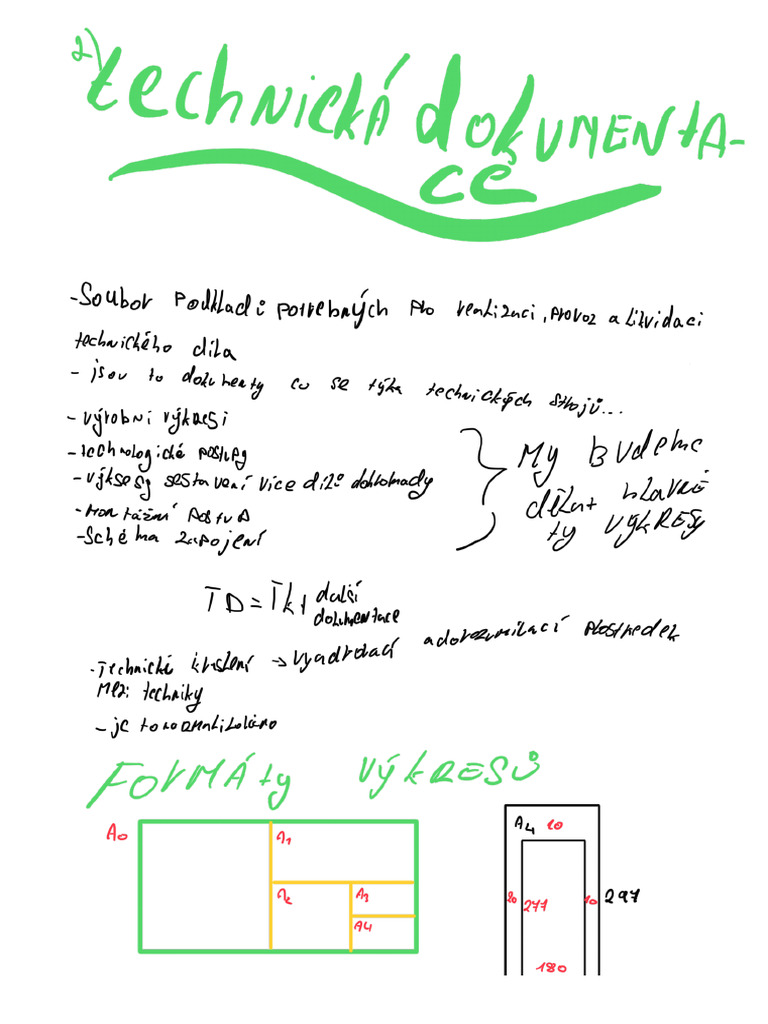 2) technická dokumenta-
ce
- Soubor podkladů potřebných pro realizaci, provoz a likvidaci
technického díla
- jsou to dokumenty co se týka technických strojů...
- výrobní výkresi
- technologické postupy
- výkresy sestavení více dílů dohromady
- Montážní postup
- Schéma zapojení
My budeme
dělat hlavně
ty výkresy
TD = TK + další
dokumentace
- Technické kreslení → vyadřovací a dorozumívací prostředek
mezi techniky
- je to normalizováno
Formáty výkresů
A0
A1
A2
A3
A4
A4 10
20 277 10 297
180